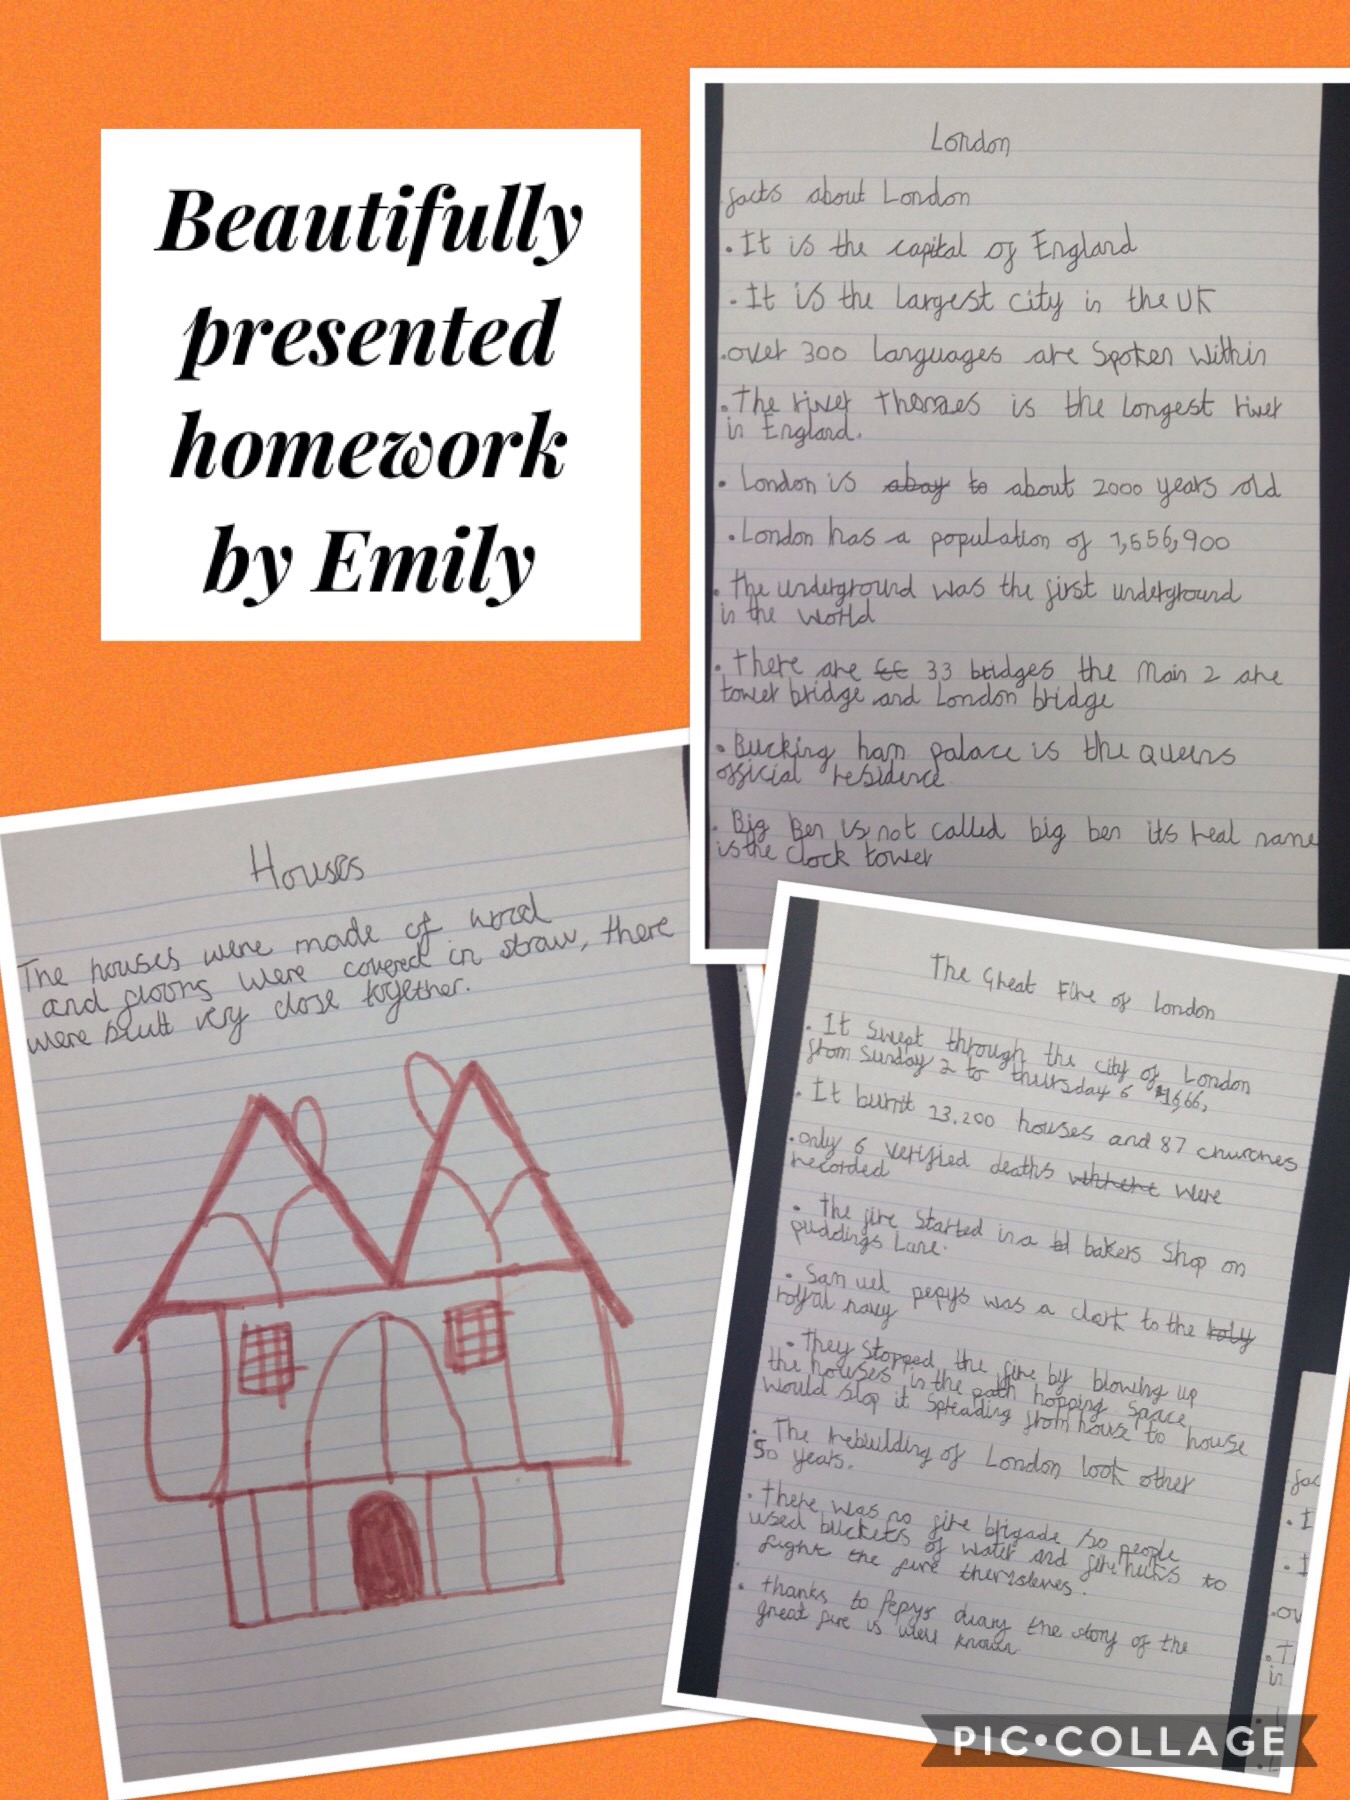 Beautifully
presented
homework
by Emily
London
facts about London
• It is the capital of England
• It is the largest city in the UK
• over 300 languages are spoken within
• The river thames is the longest river
in England.
• London is abay to about 2000 years old
• London has a population of 7,556,900
• the underground was the first underground
in the world
• there are 33 bridges the main 2 are
tower bridge and London bridge
• Bucking ham palace is the queens
official residence
• Big Ben is not called big ben its real name
is the clock tower
Houses
The houses were made of wood
and floors were covered in straw, there
were built very close together.
The Great Fire of London
• It swept through the city of London
from Sunday 2 to thursday 6 1666,
• It burnt 13,200 houses and 87 churches
• only 6 verified deaths were
recorded
• the fire started in a bakers shop on
puddings Lane.
• Samuel pepys was a clark to the
royal navy
• they stopped the fire by blowing up
the houses in the path hopping space
would stop it spreading from house to house
• The rebuilding of London took other
50 years.
• there was no fire brigade so people
used buckets of water and fire to
fight the fire themslewes.
• thanks to Pepys diary the story of the
great fire is well known
fac
• I
• I
• ov
• T
in
PIC•COLLAGE